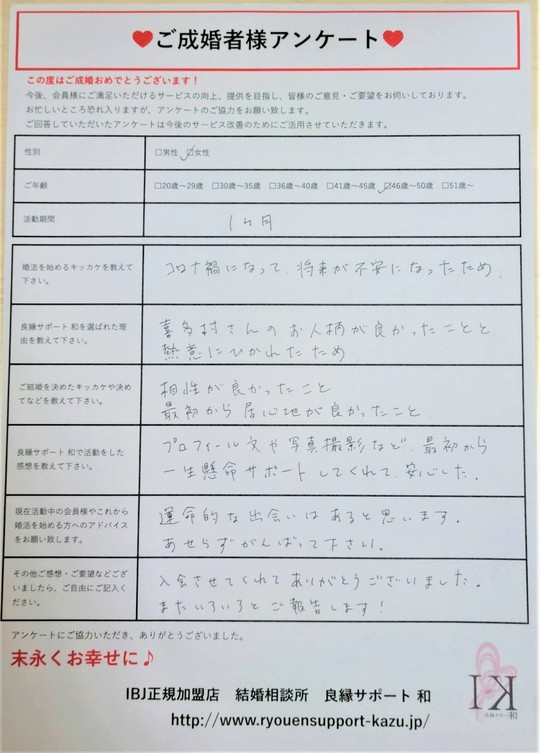 ❤ご成婚者様アンケート❤
この度はご成婚おめでとうございます！
今後、会員様にご満足いただけるサービスの向上、提供を目指し、皆様のご意見・ご要望をお伺いしております。
お忙しいところ恐れ入りますが、アンケートのご協力をお願い致します。
ご回答していただいたアンケートは今後のサービス改善のためにご活用させていただきます。
性別
□男性 ☑女性
ご年齢
□20歳～29歳 □30歳～35歳 □36歳～40歳 □41歳～45歳 ☑46歳～50歳 □51歳～
活動期間
1ヶ月
婚活を始めるキッカケを教えて
下さい。
コロナ禍になって、将来が不安になったため。
良縁サポート 和を選ばれた理
由を教えて下さい。
喜多村さんのお人柄が良かったことと
熱意にひかれたため
ご結婚を決めたキッカケや決め
てなどを教えて下さい。
相性が良かったこと
最初から居心地が良かったこと。
良縁サポート 和で活動をした
感想を教えて下さい。
プロフィール文や写真撮影など、最初から
一生懸命サポートしてくれて、安心した。
現在活動中の会員様やこれから
婚活を始める方へのアドバイス
をお願い致します。
運命的な出会いはあると思います。
あせらずがんばって下さい。
その他ご感想・ご要望などござ
いましたら、ご自由にご記入く
ださい。
入会させてくれてありがとうございました。
またいろいろとご報告します！
アンケートにご協力いただき、ありがとうございました。
末永くお幸せに♪
IBJ正規加盟店 結婚相談所 良縁サポート 和
http://www.ryouensupport-kazu.jp/
IK
良縁サポート 和